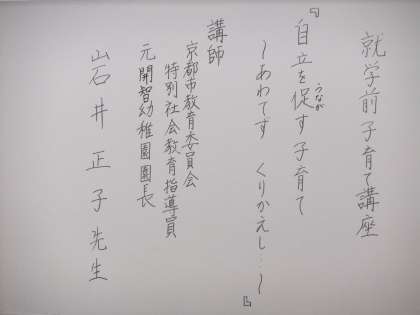 就学前子育て講座
『自立を促す子育て
うなが
~あわてず くりかえし…~』
講師
京都市教育委員会
特別社会教育指導員
元開智幼稚園園長
石井正子先生